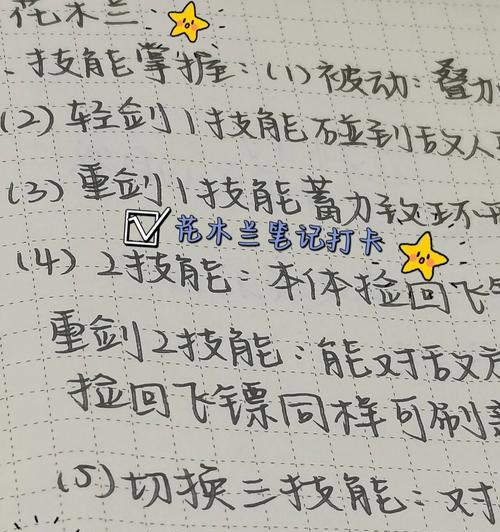 花木兰
、技能掌握：(1)被动：叠力
(2)轻剑1技能碰到敌人
(3)重剑1技能蓄力
花木兰笔记打卡
(4)2技能：本体捡回飞
重剑2技能：能对敌方
捡回飞镖同样可刷
(5)切换三技能：对